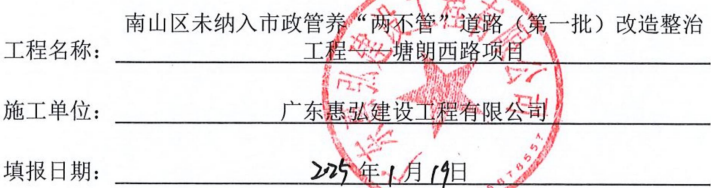 南山区未纳入市政管养“两不管”道路（第一批）改造整治
工程名称：工程——塘朗西路项目
施工单位：广东惠弘建设工程有限公司
填报日期：2025年1月19日